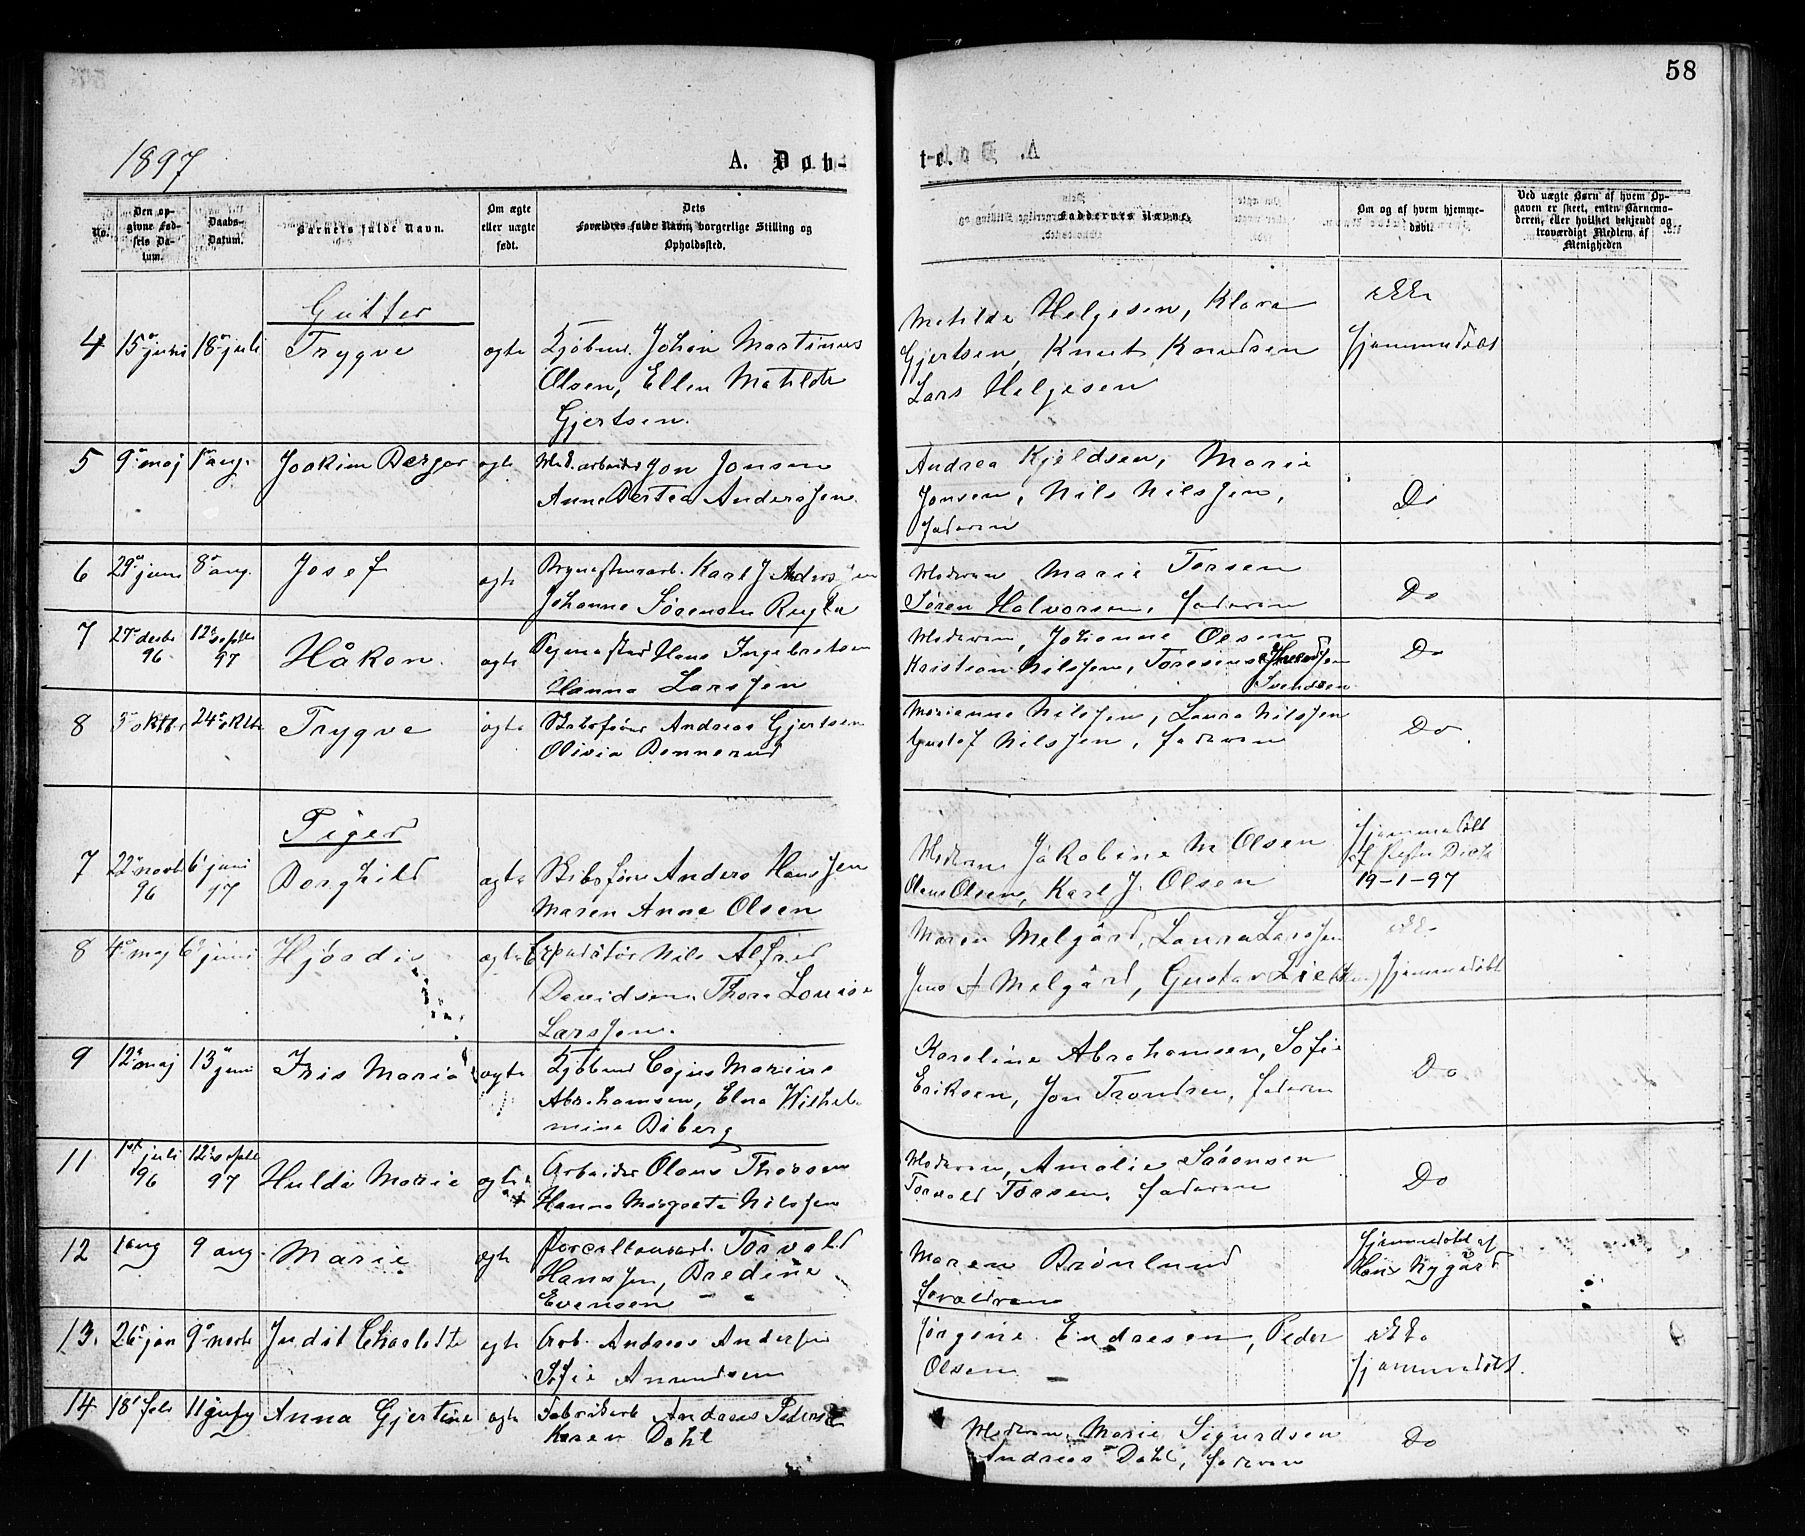 58
1897
A. Døb-
te.
No.
Den op-
givne Fød-
sels Da-
tum.
Daabs-
Datum.
Barnets fulde Navn.
Om ægte
eller uægte
født.
Dets
Forældres fulde Navn, borgerlige Stilling og
Opholdssted.
Faddernes Navne.
Om og af hvem hjemme-
døbt.
Ved uægte Børn af hvem Op-
gaven er skeet, enten Barnemo-
deren, eller hvilket bekjendt og
troværdigt Medlem af
Menigheden
Gutter
4 15 juni 18 juli Trygve ægte Kjøbmd. Johan Martinus
Olsen, Ellen Matilde
Gjertsen.
Matilde Helgesen, Klara
Gjertsen, Knut Knudsen
Lars Helgesen
ikke
hjemmedøbt
5 9 maj 1 aug. Joakim Berger ægte arbeider Jon Jonsen
Anne Bertea Anderssen
Andrea Kjeldsen, Marie
Jonsen, Nils Nilssen,
faderen
Do
6 29 juni 8 aug. Josef ægte Karl J Anderssen
Johanne Sørensen
Moderen, Marie Torsen
Søren Halvorsen, faderen
Do
7 27 desbr 96 12 septbr 97 Håkon ægte Hans Ingebretsen
Hanna Larssen
Moderen, Johanne Olsen
Kristian Nilssen,
Svendsen
Do
8 3 oktbr 24 oktbr Trygve ægte Skibsfører Andreas Gjertsen
Olivia Bennerud
Marianne Nilssen, Laura Nilssen
Gustaf Nilssen, faderen
Do
Piger
7 22 novbr 96 6 juni 97 Borghild ægte Skibsfører Anders Hanssen
Maren Anne Olsen
Moderen Jakobine M Olsen
Olaus Olsen, Karl J. Olsen
hjemmedøbt
af
19-1-97
8 4 maj 6 juni Hjørdis ægte Nils Alfred
Davidsen, Thora Louise
Larssen.
Maren Melgård, Laura Larssen
Jens A Melgård, Gustav Lie
ikke
hjemmedøbt
9 12 maj 13 juni Iris Maria ægte Kjøbmd Cajus Marius
Abrahamsen, Elna Wilhel-
mine Biberg
Karoline Abrahamsen, Sofie
Eriksen, Jon Trondsen, faderen
Do
11 1 juli 96 12 septbr 97 Hulda Marie ægte Arbeider Olaus Thorsen
Hanna Margrete Nilssen
Moderen, Amalie Sørensen
Torvald Torsen, faderen
Do
12 1 aug 9 aug. Marie ægte Porcellansarb. Torvald
Hanssen, Bredine
Evensen
Maren Brønlund
forældrene
hjemmedøbt af
Hans Nygård
13. 26 jan 9 novbr Judit Charlotte ægte Arb. Andreas Andersen
Sofie Amundsen
Jørgine Endresen, Peder
Olsen.
ikke
hjemmedøbt.
14 18 feb 11 Anna Gjertine ægte Fabrikarb Andreas Pedersen
Karen Dahl
Moderen, Marie Sigurdsen
Andreas Dahl, faderen
Do